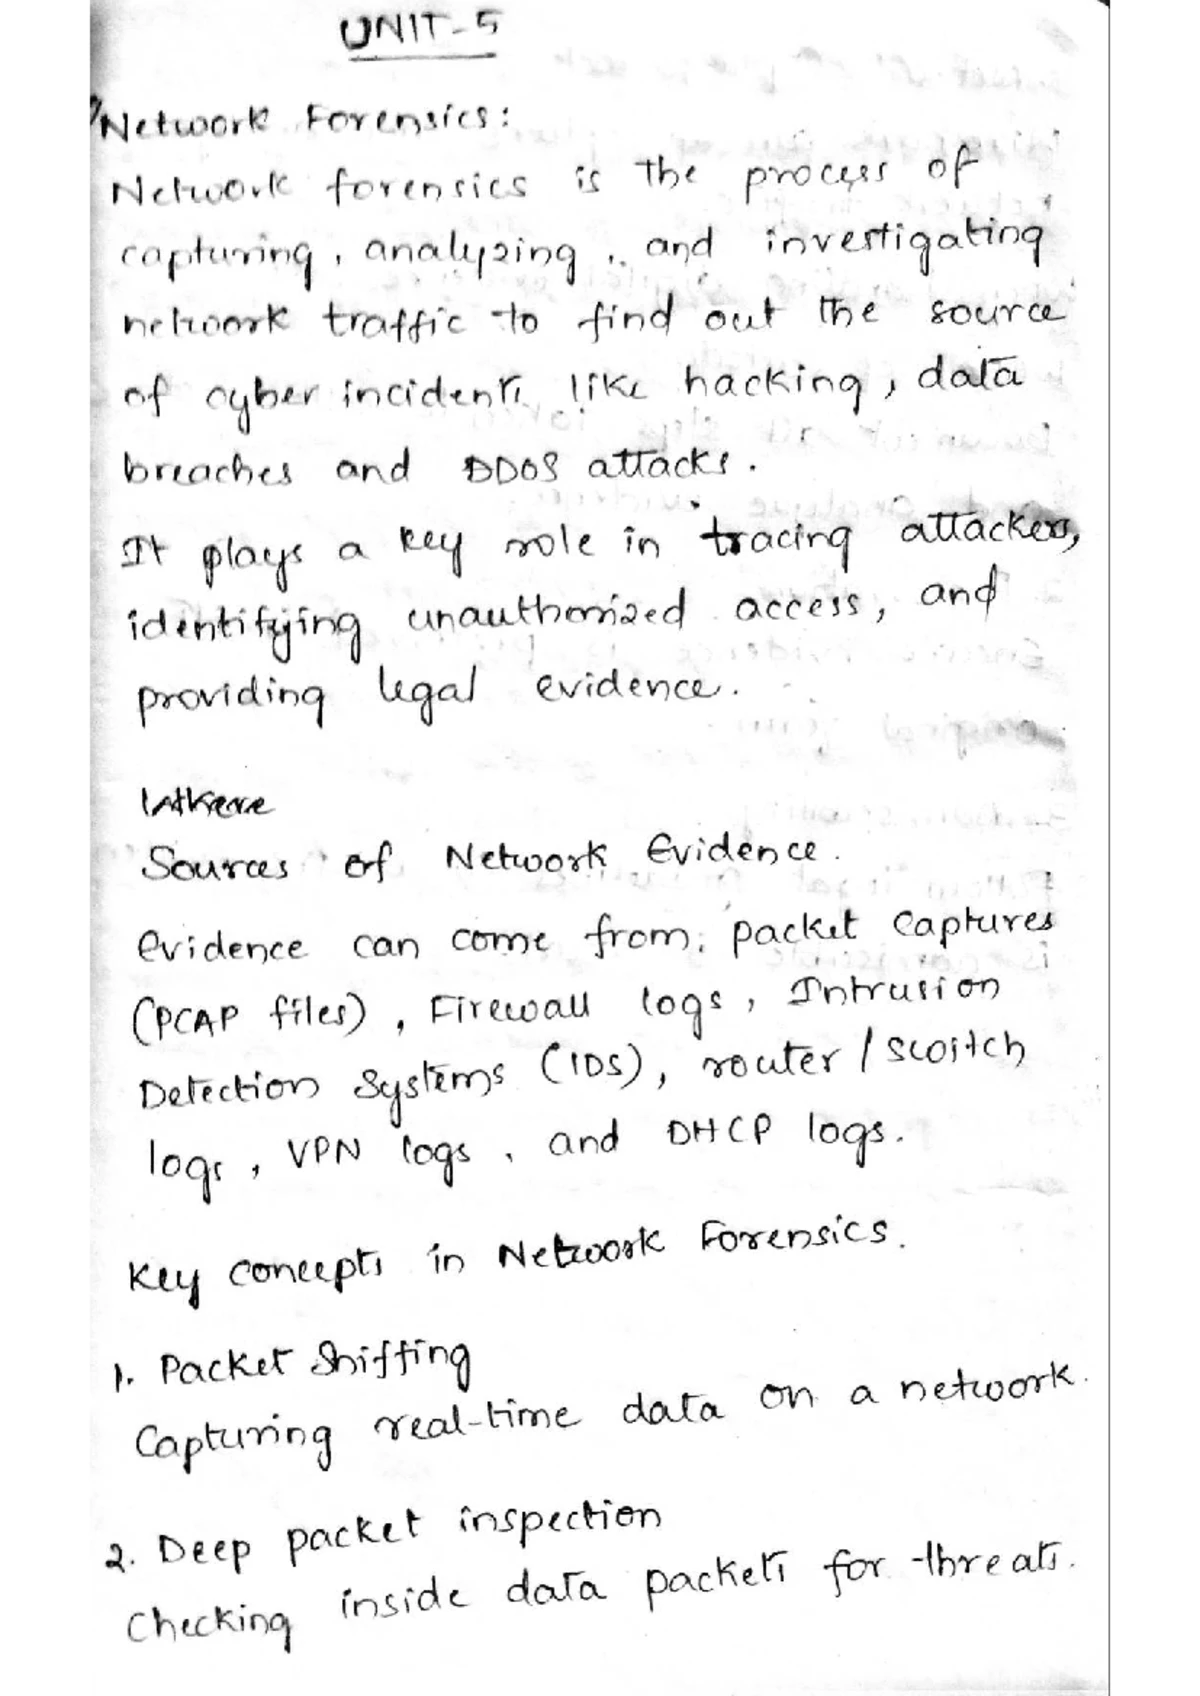 UNIT-5
Network Forensics:
Network forensics is the process of
capturing, analyzing, and investigating
network traffic to find out the source
of cyber incidents like hacking, data
breaches and DDOS attacks.
It plays a key role in tracing attackers,
identifying unauthorized access, and
providing legal evidence.
Sources of Network Evidence.
Evidence can come from: packet captures
(PCAP files), Firewall logs, Intrusion
Detection Systems (IDS), router / switch
logs, VPN logs, and DHCP logs.
Key concepts in Network Forensics.
1. Packet Shiffing
Capturing real-time data on a network.
2. Deep packet inspection
Checking inside data packets for threats.